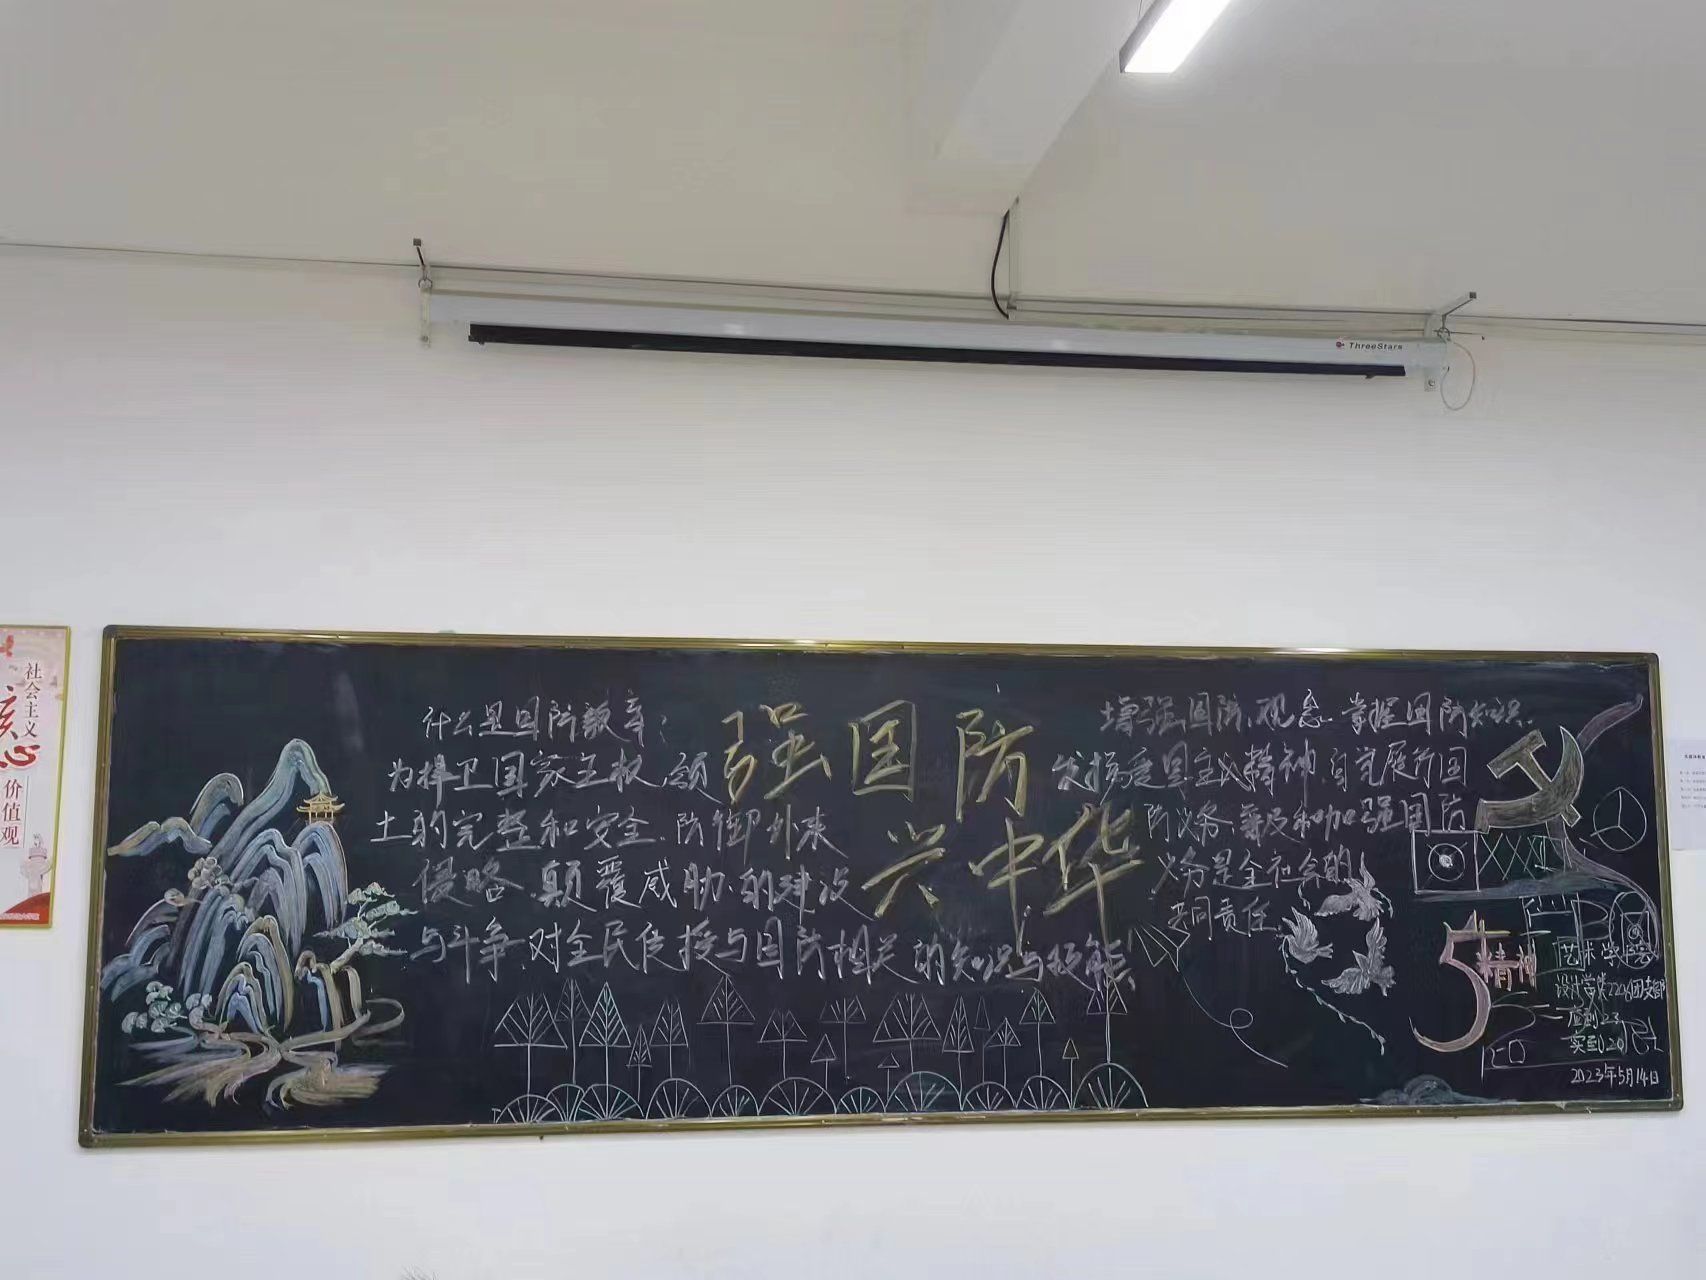 ThreeStars
社会主义
核心
价值观
强国防
兴中华
什么是国防教育:
为捍卫国家主权、领
土的完整和安全、防御外来
侵略、颠覆威胁、的建设
与斗争,对全民传授与国防相关的知识与技能
增强国防观念、掌握国防知识、
发扬爱国主义精神、自觉履行国
防义务、普及和加强国防
义务是全社会的
共同责任
5精神
艺术学院
设计学类2206团支部
应到23
实到20
2023年5月14日